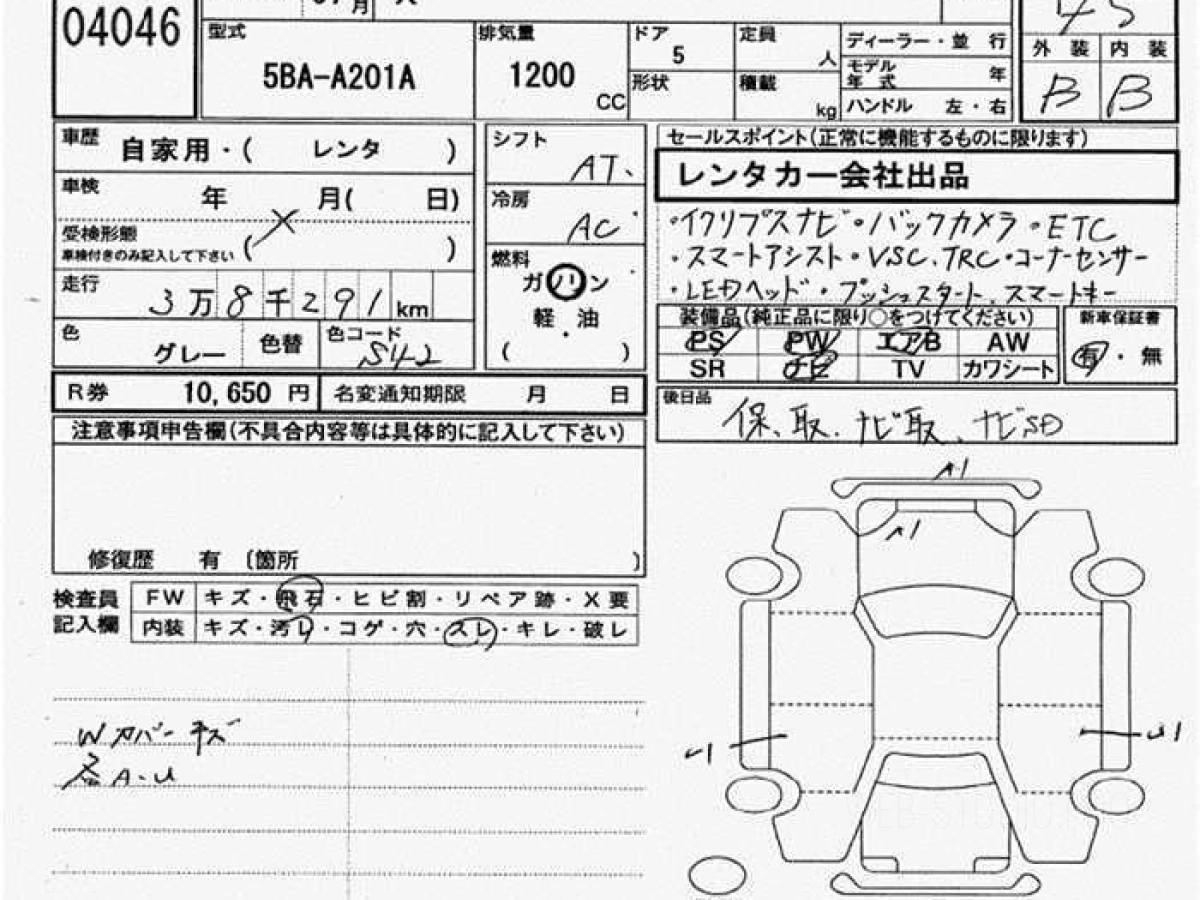 04046
型式 5BA-A201A
排気量 1200 CC
ドア 5
形状
定員 人
積載 kg
ディーラー・並 行
モデル年式 年
ハンドル 左・右
45
外 装 内 装
B B
車歴 自家用・( レンタ )
車検 年 月( 日)
受検形態 ( × )
車検付きのみ記入して下さい
走行 3万8千291 km
色 グレー 色替 色コード S42
シフト AT.
冷房 AC
燃料
ガソリン
軽 油
( )
セールスポイント(正常に機能するものに限ります)
レンタカー会社出品
・イクリプスナビ・バックカメラ・ETC
・スマートアシスト・VSC.TRC・コーナーセンサー
・LEDヘッド・プッシュスタート、スマートキー
装備品(純正品に限り○をつけてください)
PS PW エアB AW
SR ナビ TV カワシート
新車保証書
有・無
R券 10,650 円 名変通知期限 月 日
後日品 保、取、ナビ取、ナビSD
注意事項申告欄(不具合内容等は具体的に記入して下さい)
修復歴 有 〔箇所 〕
検査員記入欄
FW キズ・飛石・ヒビ割・リペア跡・X要
内装 キズ・汚レ・コゲ・穴・スレ・キレ・破レ
Wカバーキズ
各A-U
A1
A1
U1